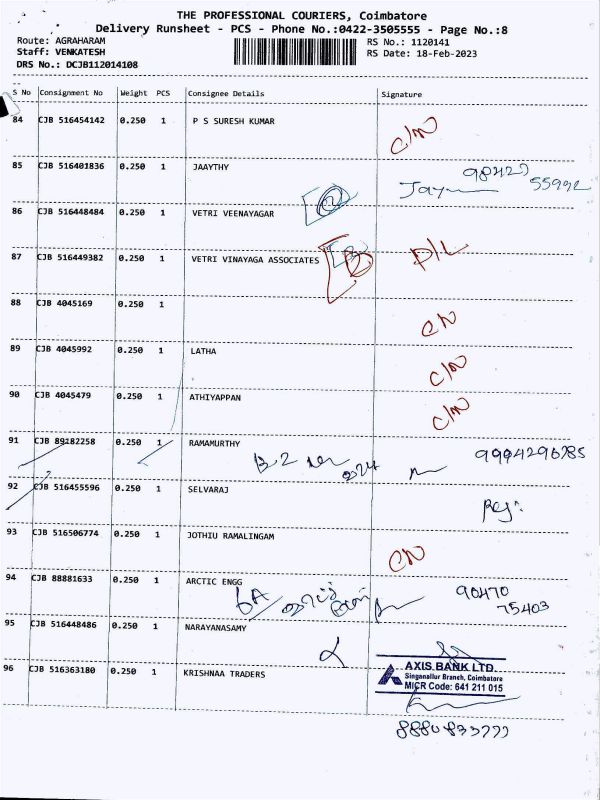 THE PROFESSIONAL COURIERS, Coimbatore
Delivery Runsheet - PCS - Phone No.:0422-3505555 - Page No.:8
Route: AGRAHARAM
Staff: VENKATESH
DRS No.: DCJB112014108
RS No.: 1120141
RS Date: 18-Feb-2023
S No Consignment No Weight PCS Consignee Details Signature
84 CJB 516454142 0.250 1 P S SURESH KUMAR C/N
85 CJB 516401836 0.250 1 JAAYTHY 98427
55992
86 CJB 516448484 0.250 1 VETRI VEENAYAGAR
87 CJB 516449382 0.250 1 VETRI VINAYAGA ASSOCIATES D/L
88 CJB 4045169 0.250 1 C/N
89 CJB 4045992 0.250 1 LATHA C/N
90 CJB 4045479 0.250 1 ATHIYAPPAN C/N
91 CJB 89182258 0.250 1 RAMAMURTHY 9994296785
92 CJB 516455596 0.250 1 SELVARAJ
93 CJB 516506774 0.250 1 JOTHIU RAMALINGAM C/N
94 CJB 88881633 0.250 1 ARCTIC ENGG 90470
75403
95 CJB 516448486 0.250 1 NARAYANASAMY
96 CJB 516363180 0.250 1 KRISHNAA TRADERS
AXIS BANK LTD.
Singanallur Branch, Coimbatore
MICR Code: 641 211 015